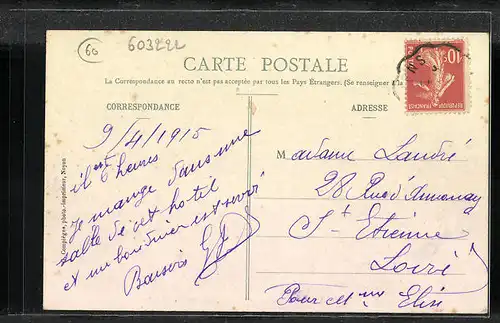 60
603222
CARTE POSTALE
La Correspondance au recto n'est pas acceptée par tous les Pays Étrangers. (Se renseigner à la
CORRESPONDANCE
ADRESSE
9/4/1915
il est 6 heures
je mange dans une
salle de cet hotel
et un bon diner est servi
Baisers
Madame Landré
28 Rue d'Annonay
St Etienne
Loire
Pour Mme Elise
10c
REPUBLIQUE FRANÇAISE
Compiègne, photo-imprimeur, Noyon